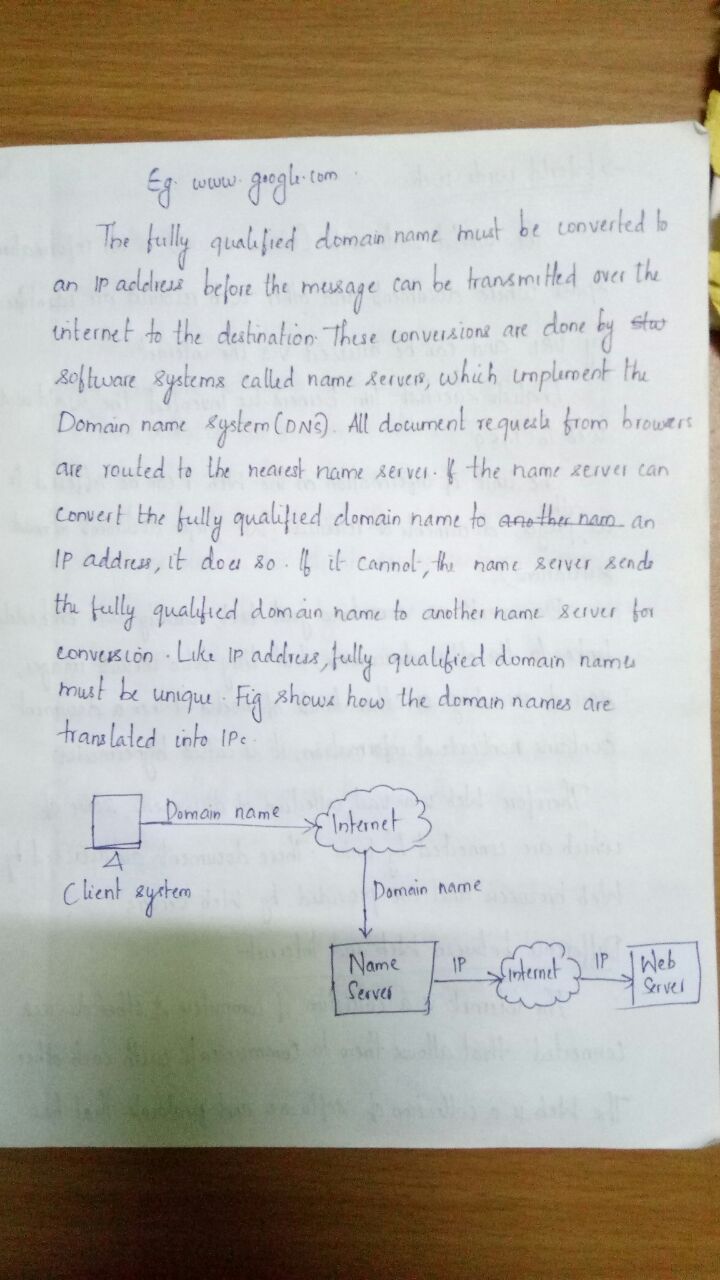 Eg. www.google.com.
The fully qualified domain name must be converted to
an IP address before the message can be transmitted over the
internet to the destination. These conversions are done by stw
software systems called name servers, which implement the
Domain name system (DNS). All document requests from browers
are routed to the nearest name server. If the name server can
convert the fully qualified domain name to another nam an
IP address, it does so. If it cannot, the name server sends
the fully qualified domain name to another name server for
conversion. Like IP address, fully qualified domain names
must be unique. Fig shows how the domain names are
translated into IPs.
Domain name
Internet
Client system
Domain name
Name Server
IP
Internet
IP
Web Server